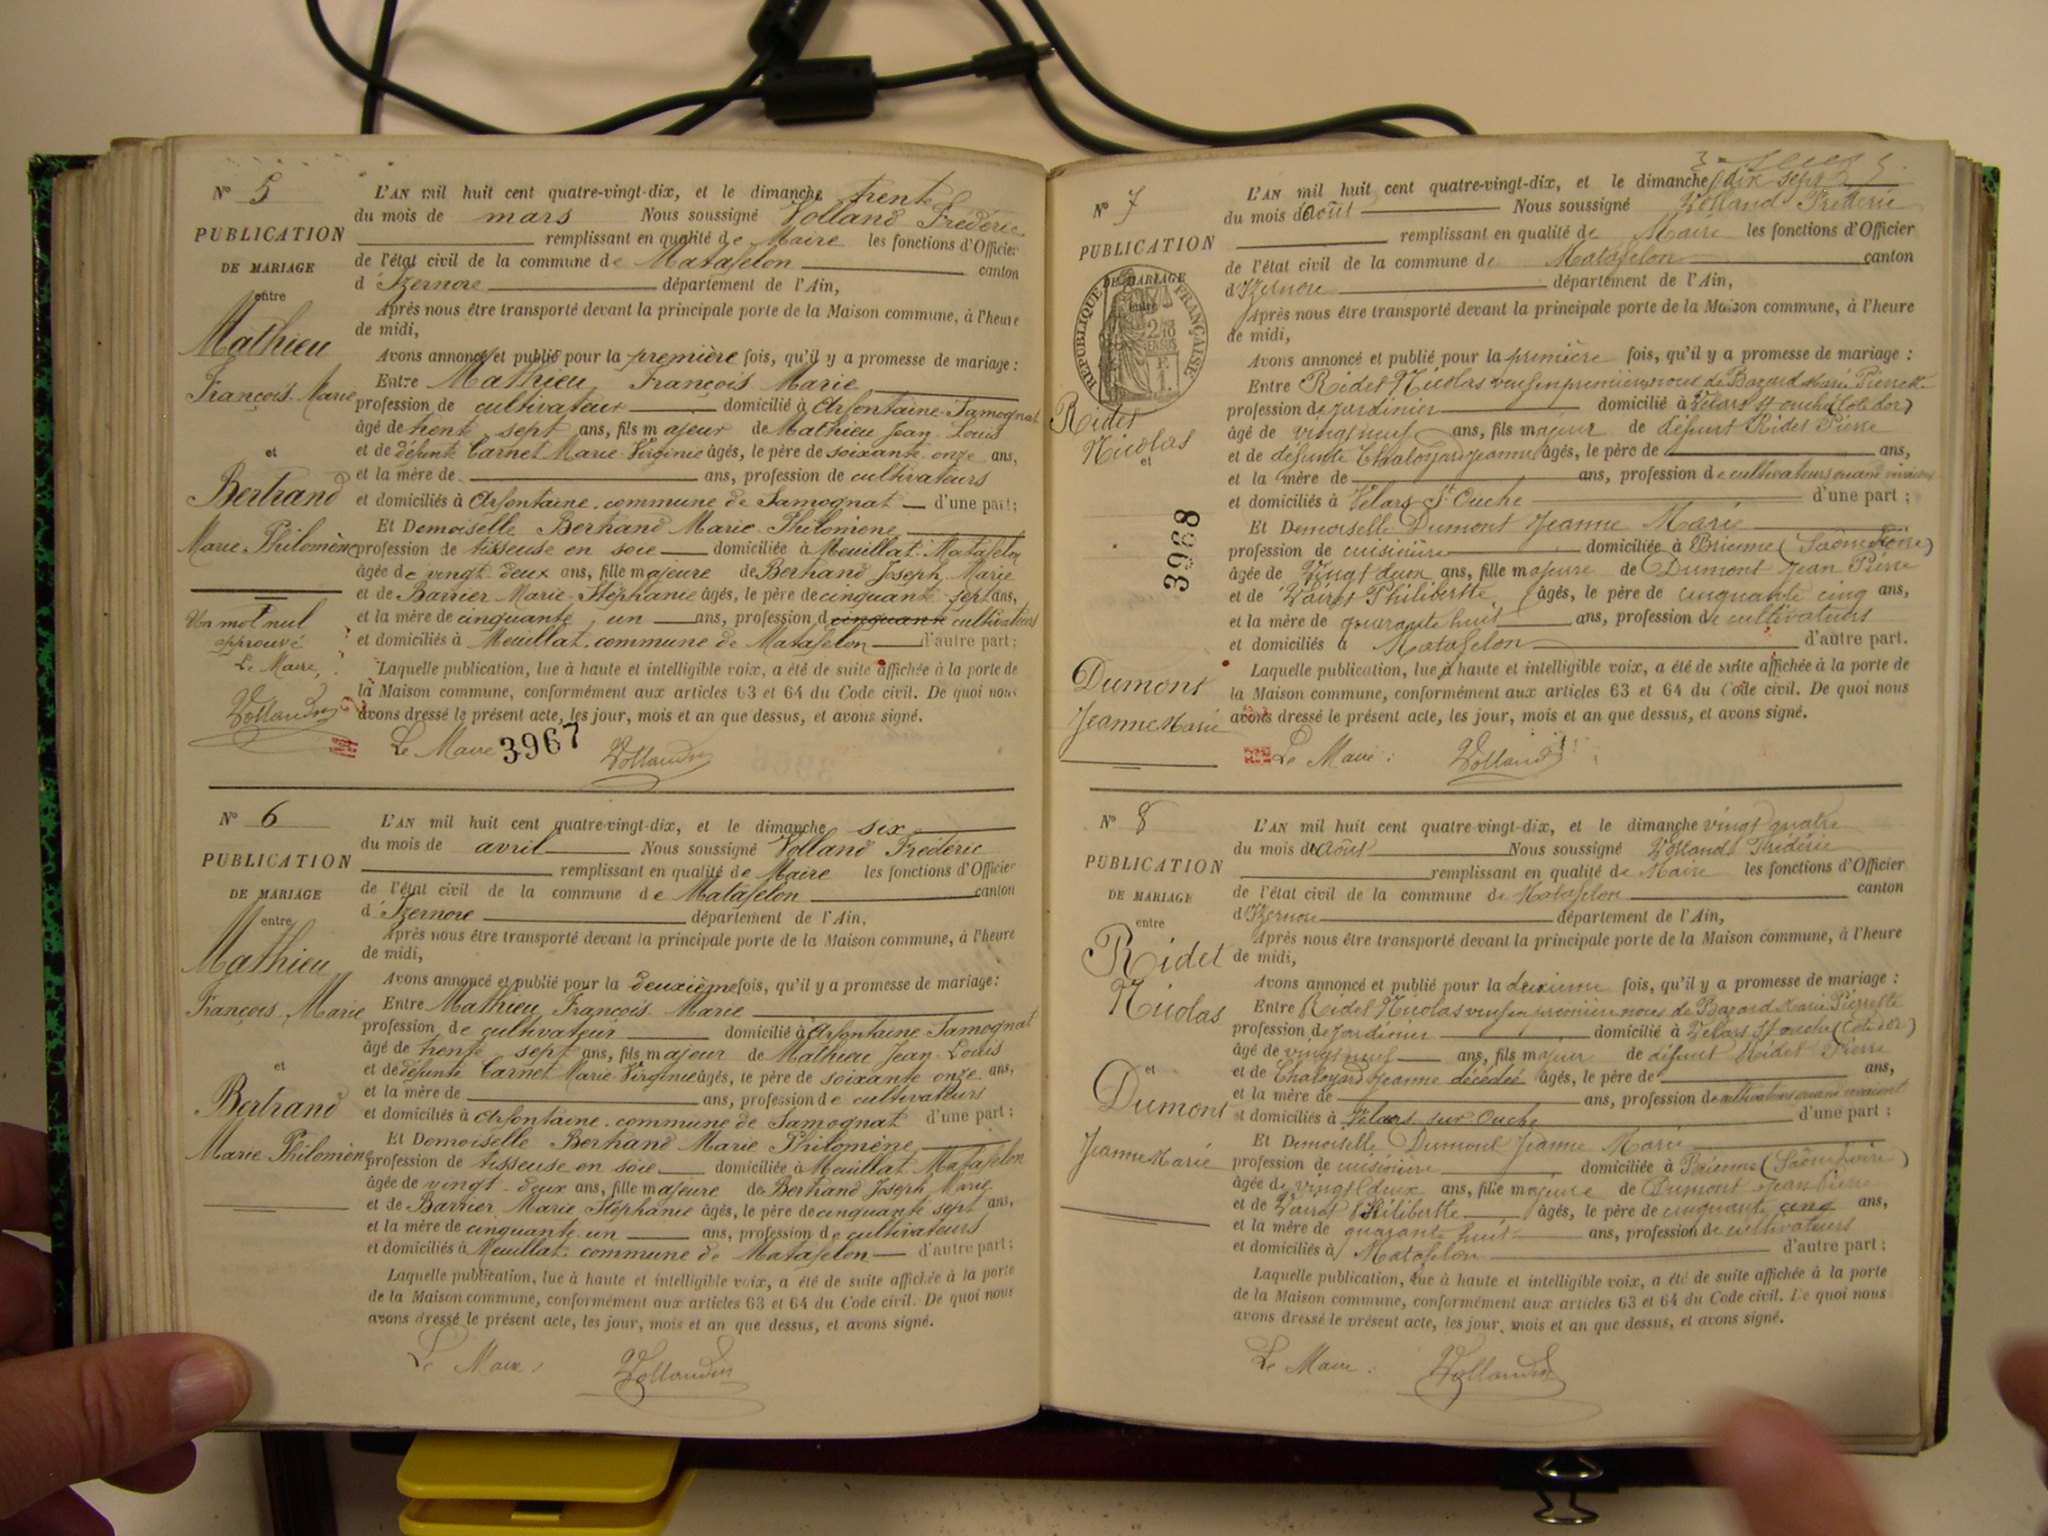 N° 5
PUBLICATION
DE MARIAGE
entre
Mathieu
François Marie
et
Bertrand
Marie Philomène
Un mot nul
approuvé
Le Maire,
Vollandy
L'AN mil huit cent quatre-vingt-dix, et le dimanche trente
du mois de mars Nous soussigné Volland Frédéric
remplissant en qualité de Maire les fonctions d'Officier
de l'état civil de la commune de Matafelon canton
d'Izernore département de l'Ain,
Après nous être transporté devant la principale porte de la Maison commune, à l'heure
de midi,
Avons annoncé et publié pour la première fois, qu'il y a promesse de mariage :
Entre Mathieu François Marie
profession de cultivateur domicilié à Arfontaine Samognat
âgé de trente sept ans, fils majeur de Mathieu Jean Louis
et de défunte Carnet Marie Virginie âgés, le père de soixante onze ans,
et la mère de ans, profession de cultivateurs
et domiciliés à Arfontaine, commune de Samognat d'une part;
Et Demoiselle Bertrand Marie Philomène
profession de tisseuse en soie domiciliée à Meuillat Matafelon
âgée de vingt deux ans, fille majeure de Bertrand Joseph Marie
et de Barrier Marie Stéphanie âgés, le père de cinquante sept ans,
et la mère de cinquante un ans, profession de cinquante cultivateurs
et domiciliés à Meuillat commune de Matafelon d'autre part;
Laquelle publication, lue à haute et intelligible voix, a été de suite affichée à la porte de
la Maison commune, conformément aux articles 63 et 64 du Code civil. De quoi nous
avons dressé le présent acte, les jour, mois et an que dessus, et avons signé.
Le Maire 3967 Vollandy
N° 6
PUBLICATION
DE MARIAGE
entre
Mathieu
François Marie
et
Bertrand
Marie Philomène
L'AN mil huit cent quatre-vingt-dix, et le dimanche six
du mois de avril Nous soussigné Volland Frédéric
remplissant en qualité de Maire les fonctions d'Officier
de l'état civil de la commune de Matafelon canton
d'Izernore département de l'Ain,
Après nous être transporté devant la principale porte de la Maison commune, à l'heure
de midi,
Avons annoncé et publié pour la deuxième fois, qu'il y a promesse de mariage:
Entre Mathieu François Marie
profession de cultivateur domicilié à Arfontaine Samognat
âgé de trente sept ans, fils majeur de Mathieu Jean Louis
et de défunte Carnet Marie Virginie âgés, le père de soixante onze ans,
et la mère de ans, profession de cultivateurs
et domiciliés à Arfontaine commune de Samognat d'une part;
Et Demoiselle Bertrand Marie Philomène
profession de tisseuse en soie domiciliée à Meuillat Matafelon
âgée de vingt deux ans, fille majeure de Bertrand Joseph Marie
et de Barrier Marie Stéphanie âgés, le père de cinquante sept ans,
et la mère de cinquante un ans, profession de cultivateurs
et domiciliés à Meuillat commune de Matafelon d'autre part;
Laquelle publication, lue à haute et intelligible voix, a été de suite affichée à la porte
de la Maison commune, conformément aux articles 63 et 64 du Code civil. De quoi nous
avons dressé le présent acte, les jour, mois et an que dessus, et avons signé.
Le Maire, Vollandy
N° 7
PUBLICATION
DE MARIAGE
entre
RÉPUBLIQUE FRANÇAISE
Ridet
Nicolas
et
3968
Dumont
Jeanne Marie
L'AN mil huit cent quatre-vingt-dix, et le dimanche dix sept
du mois d'août Nous soussigné Volland Frédéric
remplissant en qualité de Maire les fonctions d'Officier
de l'état civil de la commune de Matafelon canton
d'Izernore département de l'Ain,
Après nous être transporté devant la principale porte de la Maison commune, à l'heure
de midi,
Avons annoncé et publié pour la première fois, qu'il y a promesse de mariage :
Entre Ridet Nicolas veuf en premières noces de Bazard Marie Pierrette
profession de jardinier domicilié à Velars St ouche (Côte d'or)
âgé de vingt neuf ans, fils majeur de défunt Ridet Pierre
et de défunte Chaloyard Jeanne âgés, le père de ans,
et la mère de ans, profession de cultivateurs quand vivaient
et domiciliés à Velars St Ouche d'une part ;
Et Demoiselle Dumont Jeanne Marie
profession de cuisinière domiciliée à Brienne (Saône Loire)
âgée de vingt deux ans, fille majeure de Dumont Jean Pierre
et de Vairet Philiberte âgés, le père de cinquante cinq ans,
et la mère de quarante huit ans, profession de cultivateurs
et domiciliés à Matafelon d'autre part.
Laquelle publication, lue à haute et intelligible voix, a été de suite affichée à la porte de
la Maison commune, conformément aux articles 63 et 64 du Code civil. De quoi nous
avons dressé le présent acte, les jour, mois et an que dessus, et avons signé.
Le Maire : Vollandy
N° 8
PUBLICATION
DE MARIAGE
entre
Ridet
Nicolas
et
Dumont
Jeanne Marie
L'AN mil huit cent quatre-vingt-dix, et le dimanche vingt quatre
du mois d'août Nous soussigné Volland Frédéric
remplissant en qualité de Maire les fonctions d'Officier
de l'état civil de la commune de Matafelon canton
d'Izernore département de l'Ain,
Après nous être transporté devant la principale porte de la Maison commune, à l'heure
de midi,
Avons annoncé et publié pour la deuxième fois, qu'il y a promesse de mariage :
Entre Ridet Nicolas veuf en premières noces de Bazard Marie Pierrette
profession de jardinier domicilié à Velars St ouche (Côte d'Or)
âgé de vingt neuf ans, fils majeur de défunt Ridet Pierre
et de Chaloyard Jeanne décédée âgés, le père de ans,
et la mère de ans, profession de cultivateurs quand vivaient
et domiciliés à Velars sur Ouche d'une part ;
Et Demoiselle Dumont Jeanne Marie
profession de cuisinière domiciliée à Brienne (Saône Loire)
âgée de vingt deux ans, fille majeure de Dumont Jean Pierre
et de Vairet Philiberte âgés, le père de cinquante cinq ans,
et la mère de quarante huit ans, profession de cultivateurs
et domiciliés à Matafelon d'autre part ;
Laquelle publication, lue à haute et intelligible voix, a été de suite affichée à la porte
de la Maison commune, conformément aux articles 63 et 64 du Code civil. De quoi nous
avons dressé le présent acte, les jour, mois et an que dessus, et avons signé.
Le Maire : Vollandy